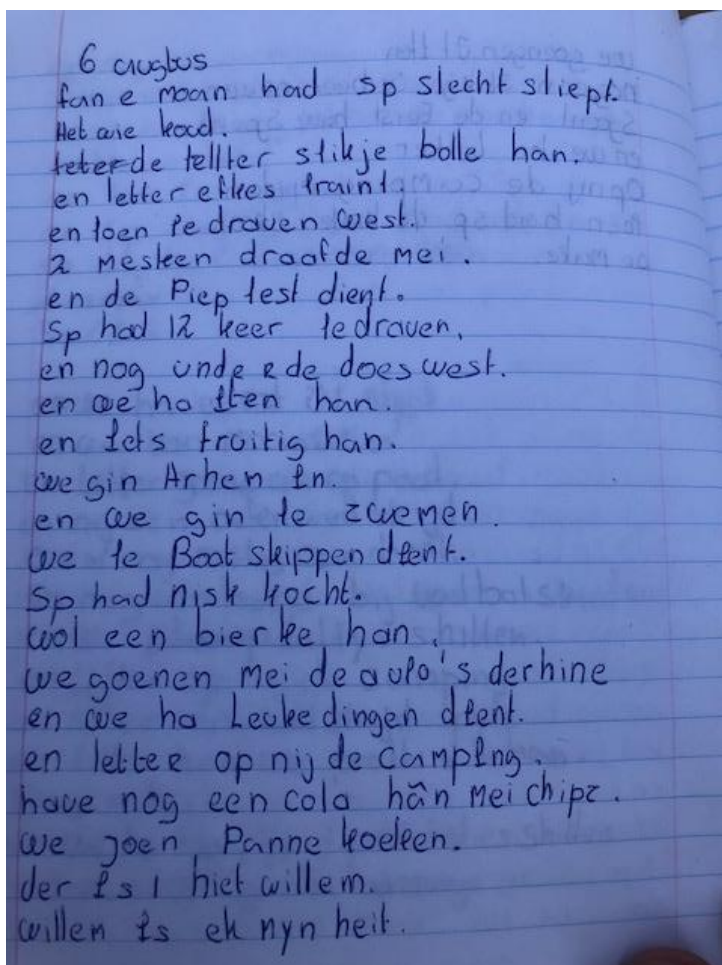 6 augtus
fan e moan had sp slecht sliept.
Het wie koud.
teterde tellter stikje bolle han.
en letter efkes traint
en toen te draven west.
2 mesken draafde mei.
en de Piep test dient.
Sp had 12 keer te draven.
en nog onde R de does west.
en we ha Iten han.
en Iets fruitig han.
we gin Arhen In.
en we gin te zwemen.
we te Boot skippen dient.
Sp had nisk kocht.
wol een bierke han.
we goenen mei de auto's derhine
en we ha Leuke dingen dient.
en letter op nij de campIng.
have nog een cola hãn mei chipz.
we joen Panne koeken.
der Is 1 hiet willem.
willen Is ek nyn heit.